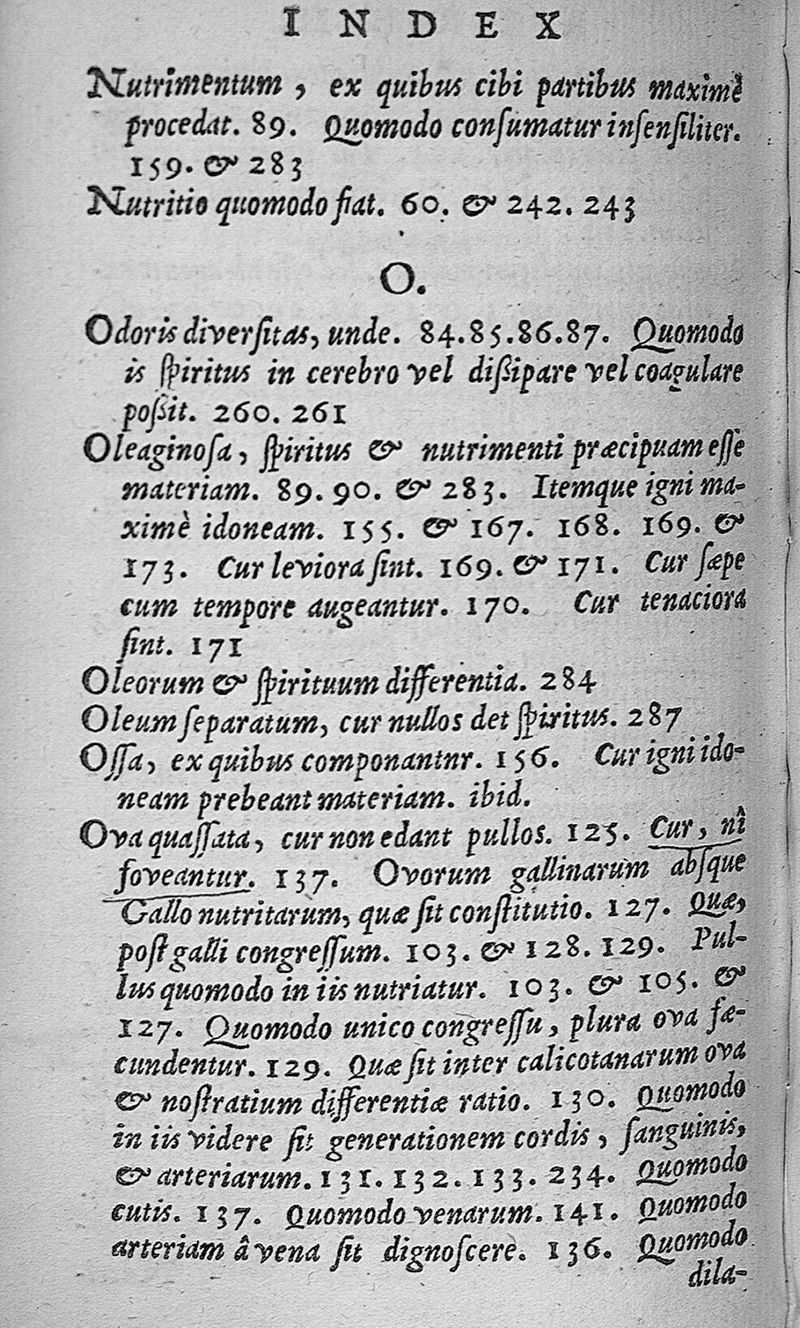 INDEX
Nutrimentum, ex quibus cibi partibus maximè
procedat. 89. Quomodo conſumatur inſenſiliter.
159. & 283
Nutritio quomodo fiat. 60. & 242. 243
O.
Odoris diverſitas, unde. 84.85.86.87. Quomodo
is ſpiritus in cerebro vel diſsipare vel coagulare
poſsit. 260. 261
Oleaginoſa, ſpiritus & nutrimenti præcipuam eſſe
materiam. 89. 90. & 283. Itemque igni ma-
ximè idoneam. 155. & 167. 168. 169. &
173. Cur leviora ſint. 169. & 171. Cur ſæpe
cum tempore augeantur. 170. Cur tenaciora
ſint. 171
Oleorum & ſpirituum differentia. 284
Oleum ſeparatum, cur nullos det ſpiritus. 287
Oſſa, ex quibus componantnr. 156. Cur igni ido-
neam prebeant materiam. ibid.
Ova quaſſata, cur non edant pullos. 125. Cur, nî
foveantur. 137. Ovorum gallinarum abſque
Gallo nutritarum, quæ ſit conſtitutio. 127. Quæ,
poſt galli congreſſum. 103. & 128. 129. Pul-
lus quomodo in iis nutriatur. 103. & 105. &
127. Quomodo unico congreſſu, plura ova fæ-
cundentur. 129. Quæ ſit inter calicotanarum ova
& noſtratium differentiæ ratio. 130. Quomodo
in iis videre ſit generationem cordis, ſanguinis,
& arteriarum. 131. 132. 133. 234. Quomodo
cutis. 137. Quomodo venarum. 141. Quomodo
arteriam â vena ſit dignoſcere. 136. Quomodo
dila-